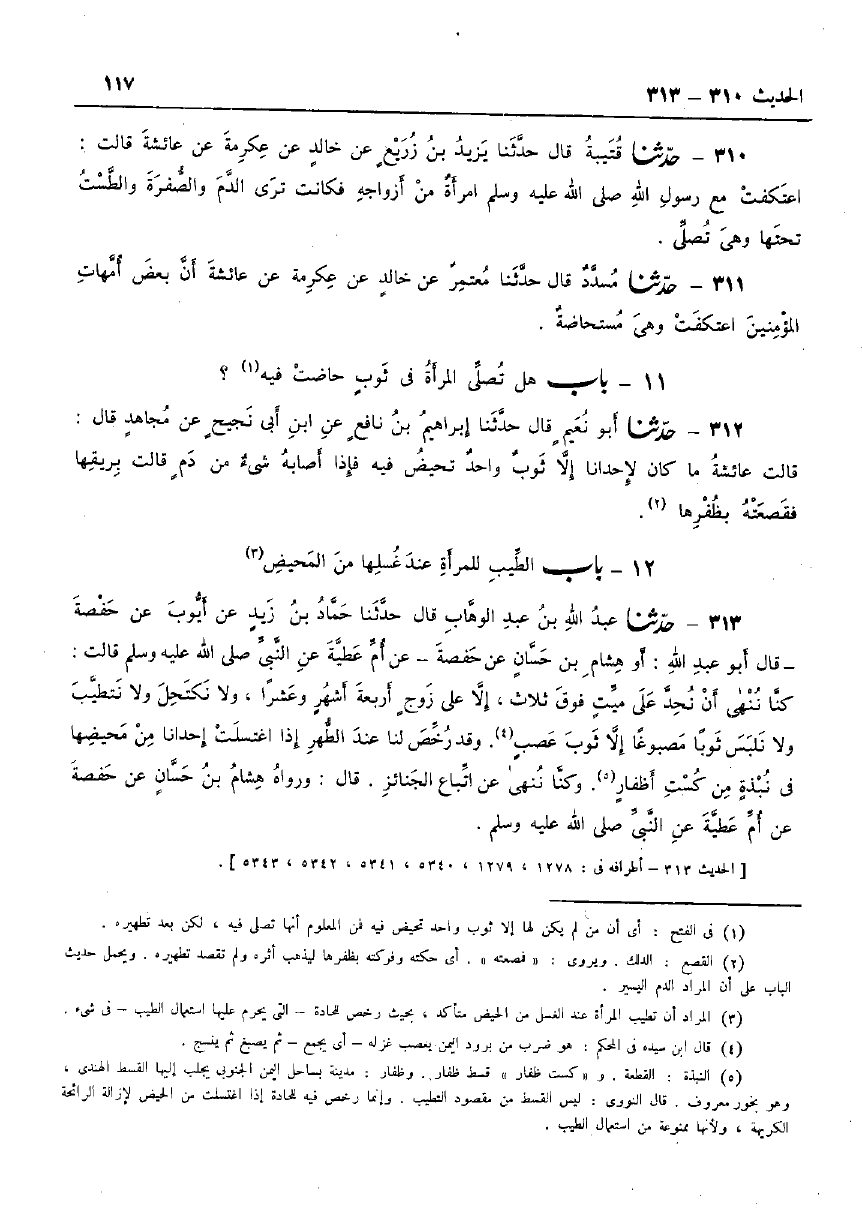 الحديث ٣١٠ – ٣١٣
١١٧
٣١٠ – حدّثنا قُتَيبةُ قال حدَّثَنا يَزيدُ بنُ زُرَيْعٍ عن خالدٍ عن عِكرِمةَ عن عائشةَ قالت :
اعتَكفتْ مع رسولِ اللهِ صلى الله عليه وسلم امرأةٌ منْ أزواجهِ فكانت ترَى الدَّمَ والصُّفرَةَ والطَّسْتُ
تحتَها وهىَ تُصلِّى .
٣١١ – حدّثنا مُسدَّدٌ قال حدَّثَنا مُعتمِرٌ عن خالدٍ عن عِكرِمة عن عائشةَ أنَّ بعضَ أُمَّهاتِ
المؤْمِنينَ اعتكفَتْ وهىَ مُستحاضةٌ .
١١ – باب هل تُصلِّى المرأةُ فى ثَوبٍ حاضتْ فيه(١) ؟
٣١٢ – حدّثنا أبو نُعَيمٍ قال حدَّثَنا إبراهيمُ بنُ نافعٍ عنِ ابنِ أبى نَجيحٍ عن مُجاهدٍ قال :
قالت عائشةُ ما كان لإِحدانا إلَّا ثَوبٌ واحدٌ تحيضُ فيه فإذا أصابهُ شىءٌ من دَمٍ قالت بِريقِها
فقَصعَتْهُ بظُفْرِها (٢).
١٢ – باب الطِّيبِ للمرأةِ عندَ غُسلِها منَ المَحيضِ(٣)
٣١٣ – حدّثنا عبدُ اللهِ بنُ عبدِ الوهَّابِ قال حدَّثَنا حَمَّادُ بنُ زَيدٍ عن أيُّوبَ عن حَفْصةَ
– قال أبو عبدِ اللهِ : أو هِشامِ بن حَسَّانٍ عن حَفصةَ – عن أمِّ عَطيَّةَ عنِ النَّبيِّ صلى الله عليه وسلم قالت :
كنَّا نُنْهٰى أنْ نُحِدَّ عَلَى ميِّتٍ فوقَ ثلاث ، إلَّا على زَوجٍ أربعةَ أشهُرٍ وعَشرًا ، ولا نَكتَحِلَ ولا نَتطيَّبَ
ولا نَلبَسَ ثوبًا مَصبوغًا إلَّا ثَوبَ عَصبٍ(٤). وقد رُخِّصَ لنا عندَ الطُّهرِ إذا اغتسلَتْ إحدانا مِنْ مَحيضِها
فى نُبْذةٍ مِن كُسْتِ أظفارٍ(٥). وكنَّا نُنهىٰ عن اتِّباع الجَنائزِ . قال : ورواهُ هِشامُ بنُ حَسَّانٍ عن حَفصةَ
عن أُمِّ عَطيَّةَ عنِ النَّبيِّ صلى الله عليه وسلم .
[ الحديث ٣١٣ – أطرافه فى : ١٢٧٨ ، ١٢٧٩ ، ٥٣٤٠ ، ٥٣٤١ ، ٥٣٤٢ ، ٥٣٤٣ ] .
(١) فى الفتح : أى أن من لم يكن لها إلا ثوب واحد تحيض فيه فمن المعلوم أنها تصلى فيه ، لكن بعد تطهيره .
(٢) القصع : الدلك . ويروى : « فصعته » . أى حكته وفركته بظفرها ليذهب أثره ولم تقصد تطهيره . ويحمل حديث
الباب على أن المراد الدم اليسير .
(٣) المراد أن تطيب المرأة عند الغسل من الحيض متأكد ، بحيث رخص للحادة – التى يحرم عليها استعمال الطيب – فى شىء .
(٤) قال ابن سيده فى المحكم : هو ضرب من برود اليمن يعصب غزله – أى يجمع – ثم يصبغ ثم ينسج .
(٥) النبذة : القطعة . و « كست ظفار » قسط ظفار . وظفار : مدينة بساحل اليمن الجنوبى يجلب إليها القسط الهندى ،
وهو بخور معروف . قال النووى : ليس القسط من مقصود التطيب . وإنما رخص فيه للحادة إذا اغتسلت من الحيض لإزالة الرائحة
الكريهة ، ولأنها ممنوعة من استعمال الطيب .